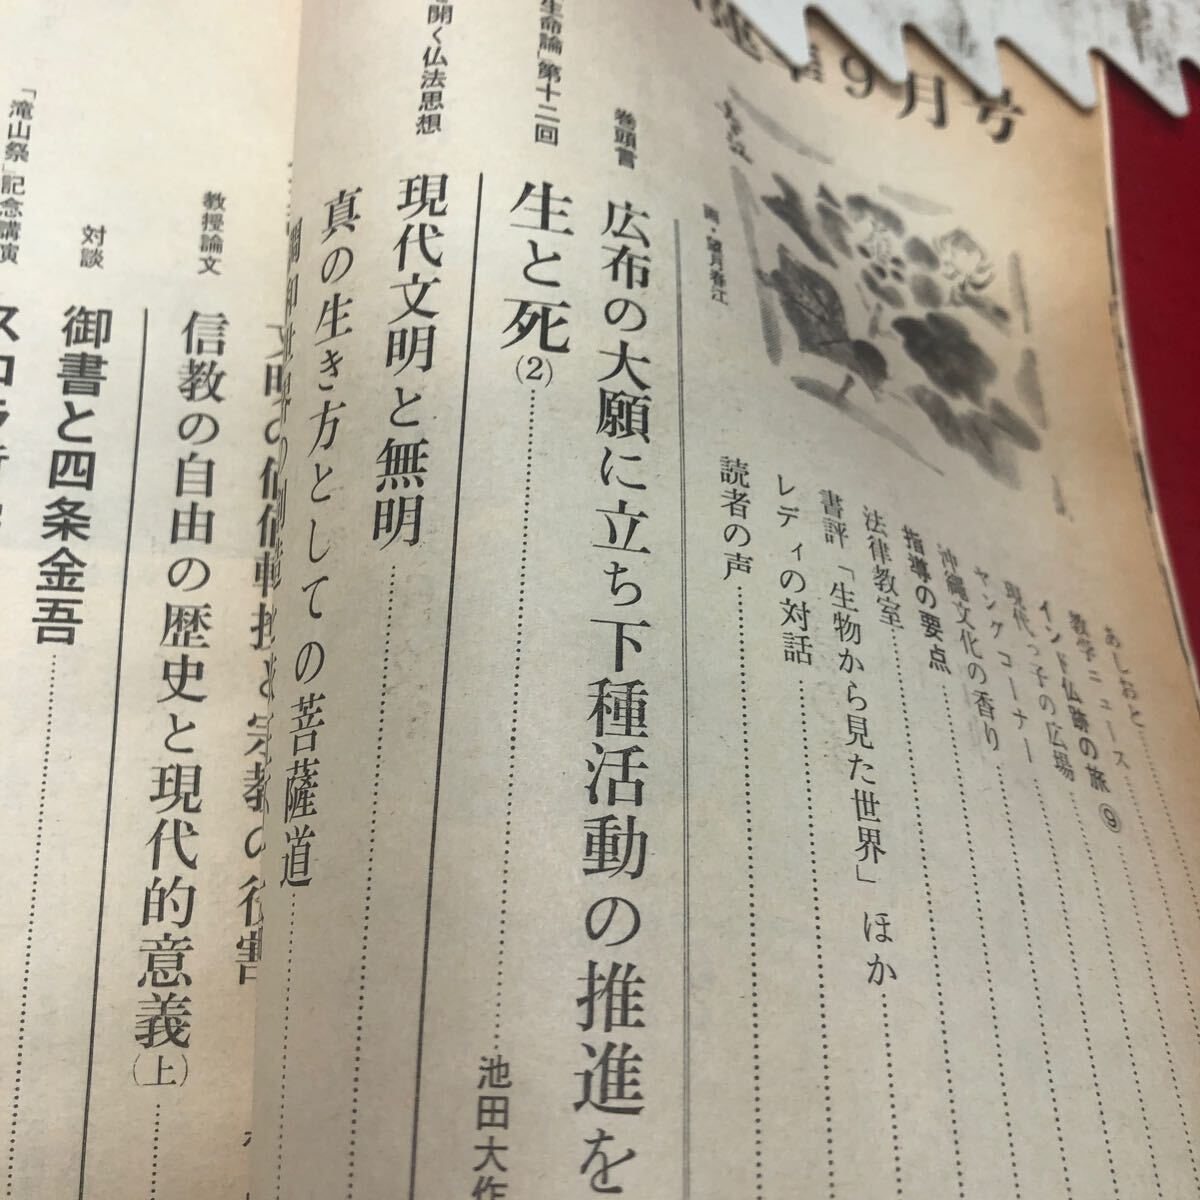 9月号
画・望月春江
あしおと
教学ニュース
インド仏跡の旅⑨
現代っ子の広場
ヤングコーナー
沖縄文化の香り
指導の要点
法律教室
書評「生物から見た世界」ほか
レディの対話
読者の声
巻頭言
広布の大願に立ち下種活動の推進を
生命論」第十二回
生と死(2)
池田大作
開く仏法思想
現代文明と無明
真の生き方としての菩薩道
教授論文
信教の自由の歴史と現代的意義(上)
対談
御書と四条金吾
「滝山祭」記念講演